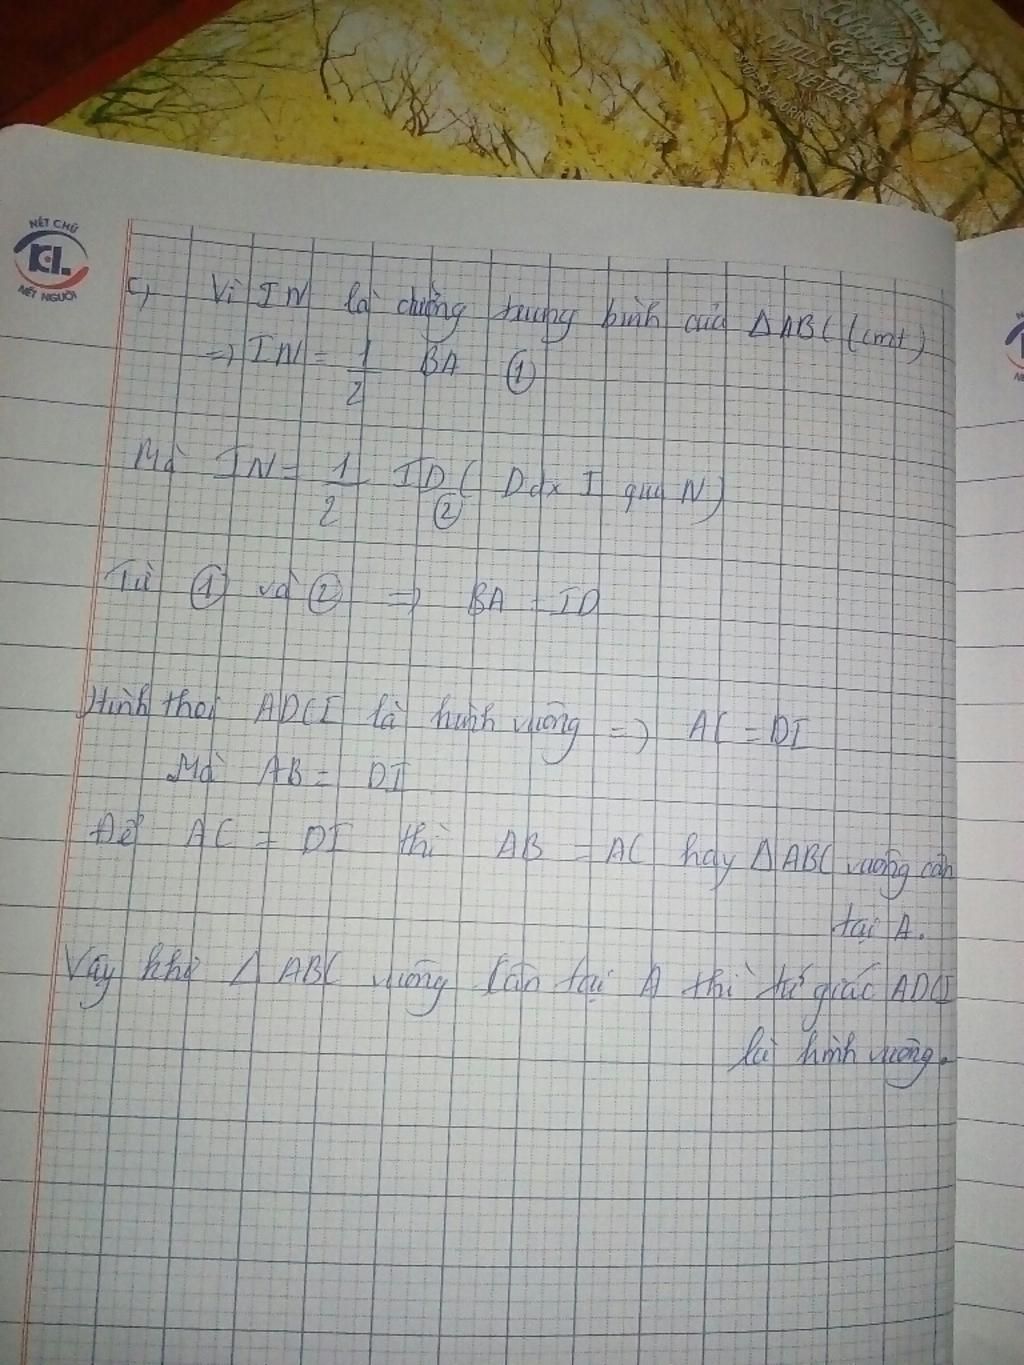 NÉT CHỮ
KL.
NẾT NGƯỜI
c, Vì IN là đường trung bình của ΔABC (cmt)
=> IN = 1/2 BA ①
Mà IN = 1/2 ID ( D đx I qua N)
②
Từ ① và ② => BA = ID
Hình thoi ADCI là hình vuông => AC = DI
Mà AB = DI
Để AC = DI thì AB = AC hay ΔABC vuông cân
tại A.
Vậy khi Δ ABC vuông cân tại A thì tứ giác ADCI
là hình vuông.